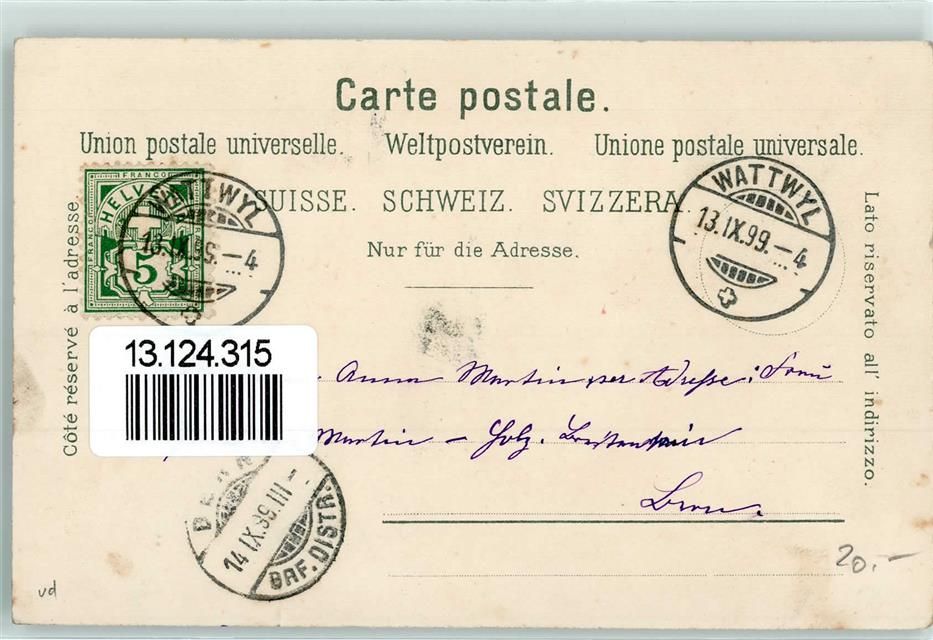 Carte postale.
Union postale universelle. Weltpostverein. Unione postale universale.
SUISSE. SCHWEIZ. SVIZZERA.
Nur für die Adresse.
Côté réservé à l'adresse.
Lato riservato all' indirizzo.
FRANCO
HELV
FRANCO
5
WATTWYL
13.IX.99.–4
WATTWYL
13.IX.99.–4
13.124.315
Anna Martin per Adresse: Frau
Martin – Holz.
Bern.
BERN
14.IX.99.III–
BRF. DISTR.
20.–
vd